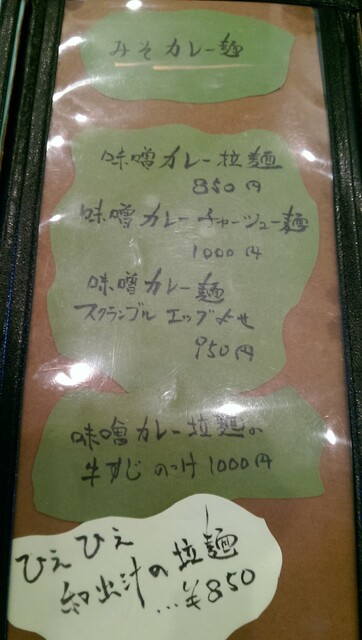 みそカレー麺
味噌カレー拉麺
850円
味噌カレーチャーシュー麺
1000円
味噌カレー麺
スクランブル エッグよせ
950円
味噌カレー拉麺の
牛すじ のっけ 1000円
ひえひえ
和出汁の拉麺
...¥850